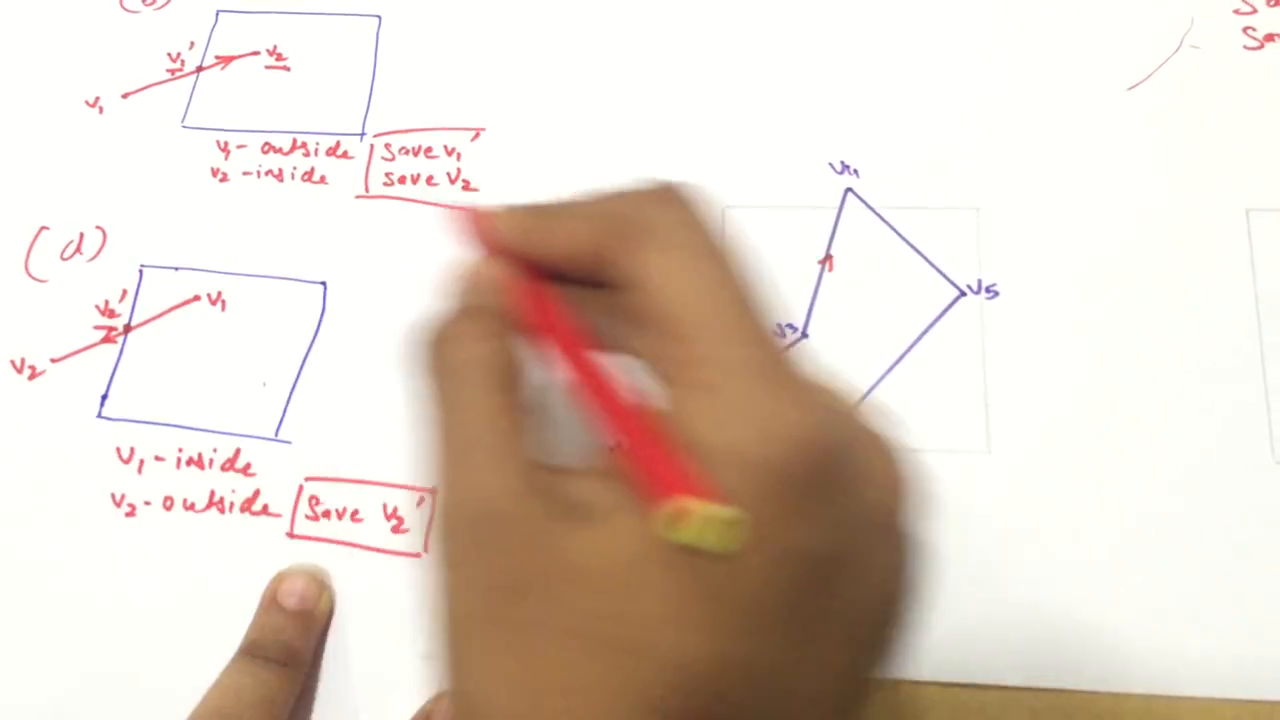 (b)
v₁'
v₂
v₁
v₁- outside
v₂ -inside
save v₁'
save v₂
(d)
v₂'
v₁
v₂
v₁-inside
v₂-outside
Save v₂'
v₄
v₅
v₃